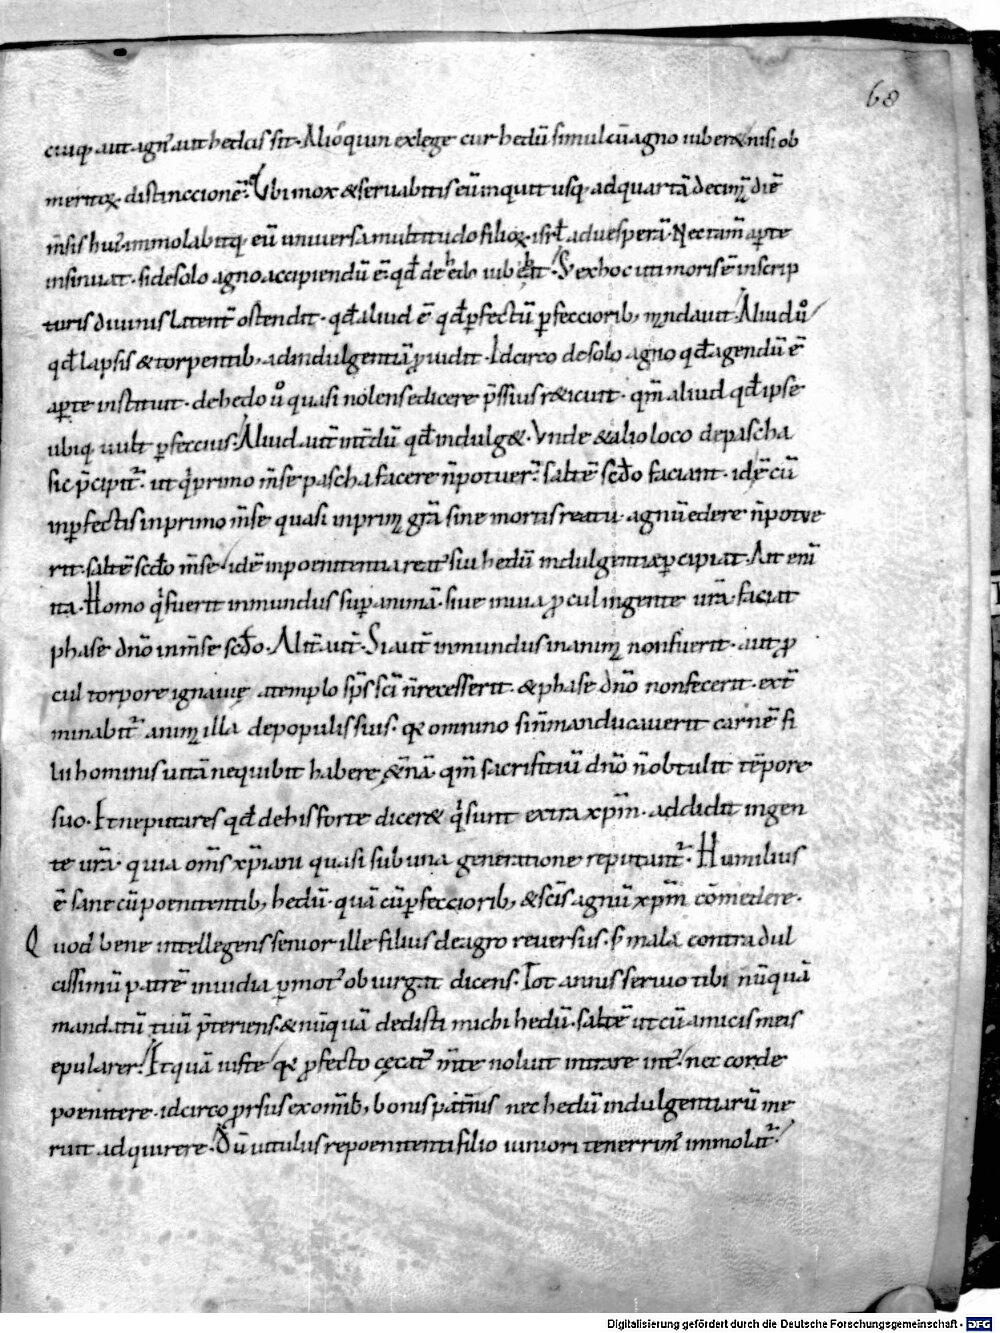 68
cuiq; aut agn᷒ aut hedus sit. Alióquin ex lege cur hedū simul cū agno iuber& nisi ob
meritoꝝ distinccionē. Ubi mox & seruabitis eū inquit usq; ad quartā decimā diē
m̄sis hui᷒. immolabitq; eū uniuersa multitudo filioꝝ isrł ad uesperā. Nec tam̄ aꝑte
insinuat. si de solo agno accipiendū ē. qđ de hedo iubebit. S; ex hoc uti moris ē in scrip
turis diuinis latent᷒ ostendit. qđ aliud ē qđ ꝑfectū ꝑfeccioribꝫ mandauit. Aliud uͦ
qđ lapsis & torpentibꝫ ad indulgentiā ꝓuidit. Idcirco de solo agno qđ agendū ē
aꝑte instituit. de hedo uͦ quasi nolens edicere p̄ssius r&icuit. qm̄ aliud qđ ipse
ubiq; uult ꝑfeccius. Aliud aut̄ int̄dū qđ indulg&. Unde & alio loco de pascha
sic p̄cipit᷒. ut qͥ primo m̄se pascha facere n̄ potuer̄. saltē scđo faciant. idē cū
inꝑfectis in primo m̄se quasi in prima gr̄a sine mortis reatu agnū edere n̄ potue
rit. saltē scđo m̄se idē in poenitentia reat᷒ sui hedū indulgentiæ ꝑcipiat. Ait eni̅
ita. Homo qͥ fuerit inmundus sup̄ animā. siue in uia ꝓcul in gente ur̄a. faciat
phase dn̄o in m̄se scđo. Alit̄ aut̄. Si aut̄ inmundus in anima non fuerit. aut ꝓ
cul torpore ignauię a templo sp̄s sc̄i n̄ recesserit. & phase dn̄o non fecerit. ext̄
minabit᷒ anima illa de populis suis. qꝫ omnino si n̄ manducauerit carnē fi
lii hominis uitā nequibit habere &̄nā. qm̄ sacrifitiū dn̄o n̄ obtulit tēpore
suo. Et ne putares qđ de his forte dicer& qͥ sunt extra xp̄m̄. addidit in gen
te ur̄a. quia om̄s xp̄iani quasi sub una generatione reputant᷒. Humilius
ē sane cū poenitentibꝫ hedū. quā cū ꝑfeccioribꝫ & sc̄is agnū xp̄m̄ cōmedere.
Quod bene intellegens senior ille filius de agro reuersus. s; mala contra dul
cissimū patrē inuidia ꝑmot᷒ obiurgat dicens. Tot annis seruio tibi nūquā
mandatū tuū p̄teriens. & nūquā dedisti michi hedū. saltē ut cū amicis meis
epularer. Et quā iuste qꝫ ꝓfecto cęcat᷒ m̄te noluit intrare int᷒. nec corde
poenitere. idcirco ꝓrsus ex om̄ibꝫ bonis pat̄nis nec hedū indulgentiarū me
ruit adquirere. Dū uitulus repoenitenti filio iuniori tenerrim᷒ immolat᷒.
Digitalisierung gefördert durch die Deutsche Forschungsgemeinschaft - DFG